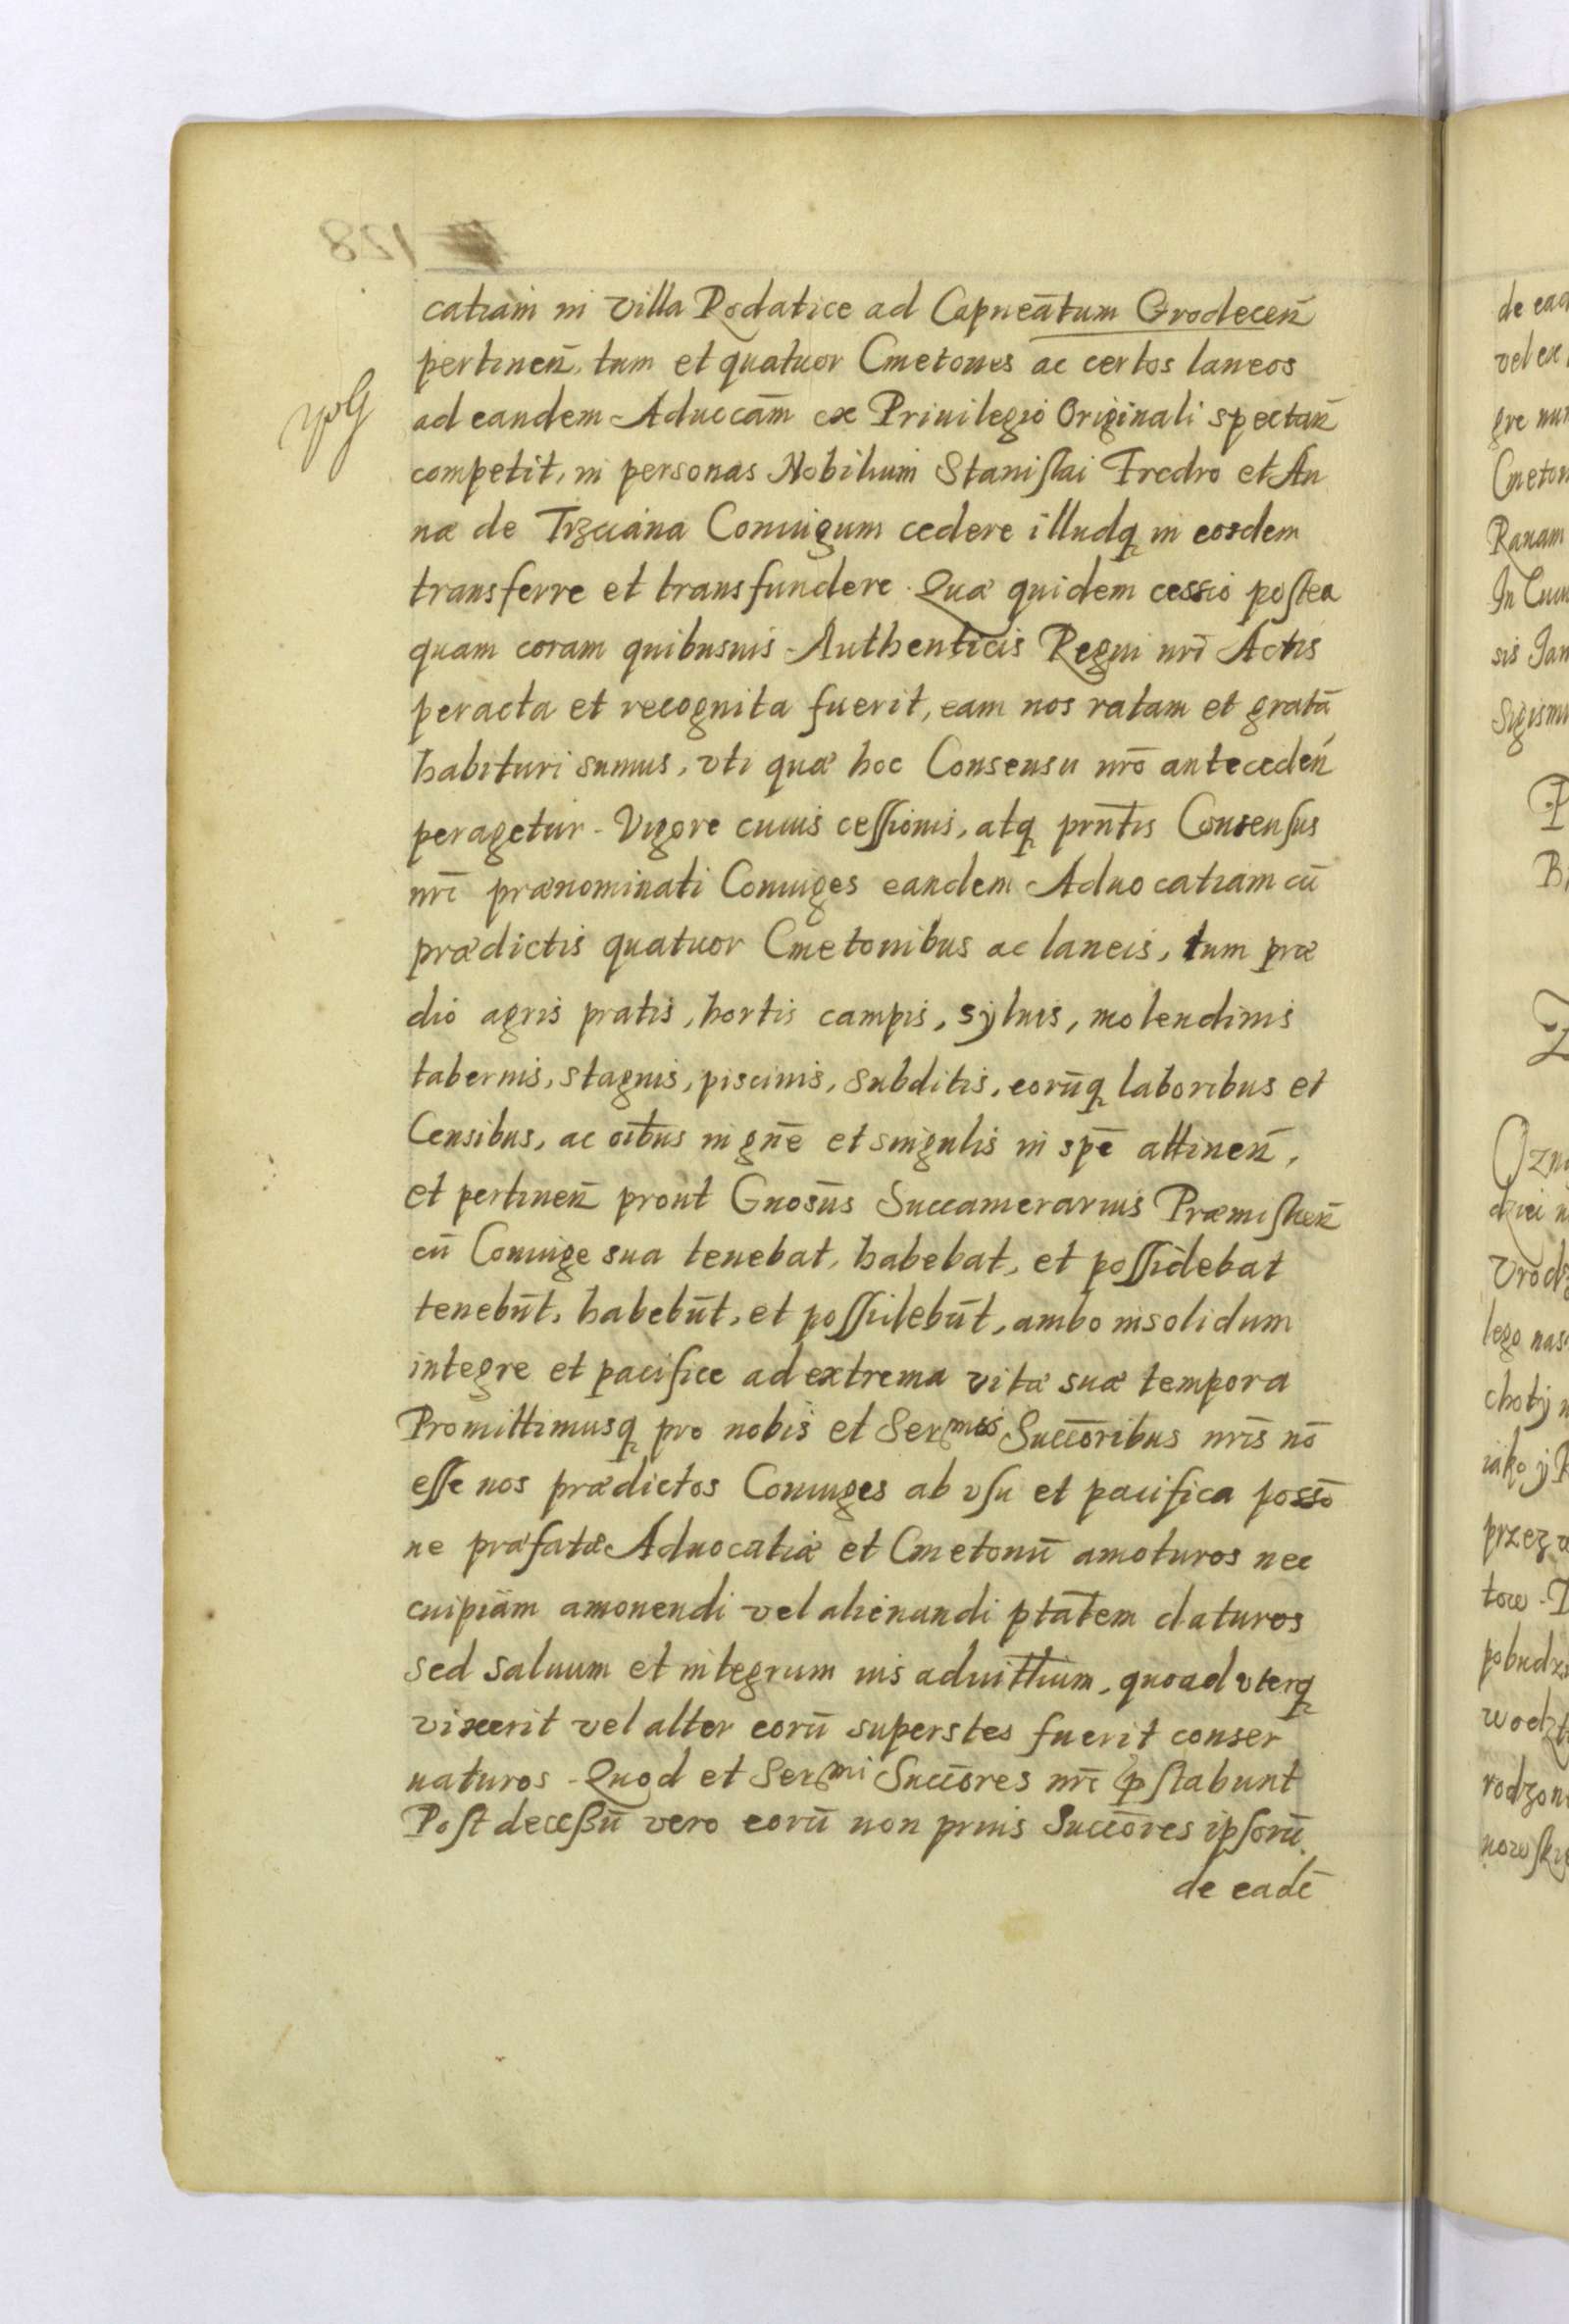 catiam in villa Rodatice ad Capneātum Grodecen̄
pertinen̄, tum et quatuor Cmetones ac certos laneos
ad eandem Aduocām ex Priuilegio Originali spectan̄
competit, in personas Nobilium Stanislai Fredro et An
næ de Trzciana Coniugum cedere illudq in eosdem
transferre et transfundere. Quæ quidem cessio postea
quam coram quibusuis Authenticis Regni nrī Actis
peracta et recognita fuerit, eam nos ratam et gratā
habituri sumus, vti quæ hoc Consensu nrō anteceden̄
peragetur. Vigore cuius cessionis, atq prn̄tis Consensus
nrī prænominati Coniuges eandem Aduocatiam cū
prædictis quatuor Cmetonibus ac laneis, tum præ
dio agris pratis, hortis campis, syluis, molendinis
tabernis, stagnis, piscinis, subditis, eorūq laboribus et
Censibus, ac oībus in gn̄e et singulis in spē attinen̄,
et pertinen̄ prout Gnosūs Succamerarius Præmislien̄
cū Coniuge sua tenebat, habebat, et possidebat
tenebūt, habebūt, et possidebūt, ambo insolidum
integre et pacifice ad extrema vitæ suæ tempora
Promittimusq pro nobis et Sermis Succōribus nrīs nō
esse nos prædictos Coniuges ab vsu et pacifica possō
ne præfatæ Aduocatiæ et Cmetonū amoturos nec
cuipiam amouendi vel alienandi ptātem daturos
sed saluum et integrum ius aduitium, quoad vterq
vixerit vel alter eorū superstes fuerit conser
uaturos. Quod et Sermi Succōres nrī pstabunt
Post decessū vero eorū non prius Succōres ipsorū
de eadē
128